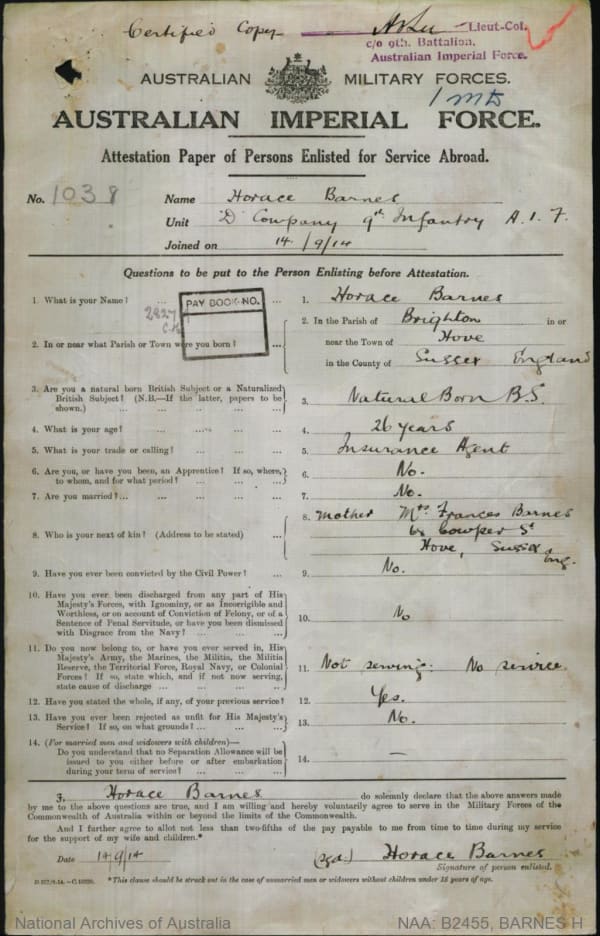 Certified Copy
Lieut-Col.
c/o 9th. Battalion.
Australian Imperial Force.
AUSTRALIAN MILITARY FORCES.
AUSTRALIAN IMPERIAL FORCE.
Attestation Paper of Persons Enlisted for Service Abroad.
No. 1038 Name Horace Barnes
Unit "D" Company 9th Infantry A.I.F
Joined on 14/9/14
Questions to be put to the Person Enlisting before Attestation.
1. What is your Name? ... ... 1. Horace Barnes
PAY BOOK NO.
2. In or near what Parish or Town were you born? ... 2. In the Parish of Brighton in or
near the Town of Hove
in the County of Sussex England
3. Are you a natural born British Subject or a Naturalized
British Subject? (N.B.—If the latter, papers to be
shown.) ... ... ... ... ... 3. Natural Born B.S.
4. What is your age? ... ... ... ... 4. 26 years
5. What is your trade or calling? ... ... ... 5. Insurance Agent
6. Are you, or have you been, an Apprentice? If so, where,
to whom, and for what period? ... ... ... 6. No.
7. Are you married?... ... ... ... ... 7. No.
8. Who is your next of kin? (Address to be stated) ... 8. Mother Mrs Frances Barnes
Cowper St
Hove, Sussex Eng.
9. Have you ever been convicted by the Civil Power? ... 9. No.
10. Have you ever been discharged from any part of His
Majesty's Forces, with Ignominy, or as Incorrigible and
Worthless, or on account of Conviction of Felony, or of a
Sentence of Penal Servitude, or have you been dismissed
with Disgrace from the Navy? ... ... ... 10. No
11. Do you now belong to, or have you ever served in, His
Majesty's Army, the Marines, the Militia, the Militia
Reserve, the Territorial Force, Royal Navy, or Colonial
Forces? If so, state which, and if not now serving,
state cause of discharge ... ... ... ... 11. Not serving: No service.
12. Have you stated the whole, if any, of your previous service? 12. Yes.
13. Have you ever been rejected as unfit for His Majesty's
Service? If so, on what grounds? ... ... ... 13. No.
14. (For married men and widowers with children)—
Do you understand that no Separation Allowance will be
issued to you either before or after embarkation
during your term of service? ... ... ... 14. —
I, Horace Barnes do solemnly declare that the above answers made
by me to the above questions are true, and I am willing and hereby voluntarily agree to serve in the Military Forces of the
Commonwealth of Australia within or beyond the limits of the Commonwealth.
And I further agree to allot not less than two-fifths of the pay payable to me from time to time during my service
for the support of my wife and children.*
Date 14/9/14 (sgd.) Horace Barnes
Signature of person enlisted.
*This clause should be struck out in the case of unmarried men or widowers without children under 18 years of age.
National Archives of Australia NAA: B2455, BARNES H